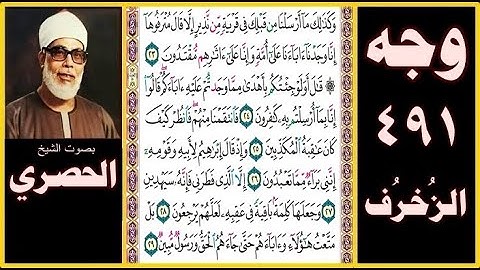 وجه
٤٩١
الزُخرُف
وَكَذَٰلِكَ مَآ أَرْسَلْنَا مِن قَبْلِكَ فِى قَرْيَةٍ مِّن نَّذِيرٍ إِلَّا قَالَ مُتْرَفُوهَآ
إِنَّا وَجَدْنَآ ءَابَآءَنَا عَلَىٰٓ أُمَّةٍ وَإِنَّا عَلَىٰٓ ءَاثَٰرِهِم مُّقْتَدُونَ ٢٣
۞ قَٰلَ أَوَلَوْ جِئْتُكُم بِأَهْدَىٰ مِمَّا وَجَدتُّمْ عَلَيْهِ ءَابَآءَكُمْ قَالُوٓا۟
إِنَّا بِمَآ أُرْسِلْتُم بِهِۦ كَٰفِرُونَ ٢٤ فَٱنتَقَمْنَا مِنْهُمْ فَٱنظُرْ كَيْفَ
كَانَ عَٰقِبَةُ ٱلْمُكَذِّبِينَ ٢٥ وَإِذْ قَالَ إِبْرَٰهِيمُ لِأَبِيهِ وَقَوْمِهِۦٓ
إِنَّنِى بَرَآءٌ مِّمَّا تَعْبُدُونَ ٢٦ إِلَّا ٱلَّذِى فَطَرَنِى فَإِنَّهُۥ سَيَهْدِينِ
٢٧ وَجَعَلَهَا كَلِمَةًۢ بَاقِيَةً فِى عَقِبِهِۦ لَعَلَّهُمْ يَرْجِعُونَ ٢٨ بَلْ
مَتَّعْتُ هَٰٓؤُلَآءِ وَءَابَآءَهُمْ حَتَّىٰ جَآءَهُمُ ٱلْحَقُّ وَرَسُولٌ مُّبِينٌ ٢٩
بصوت الشيخ
الحصري